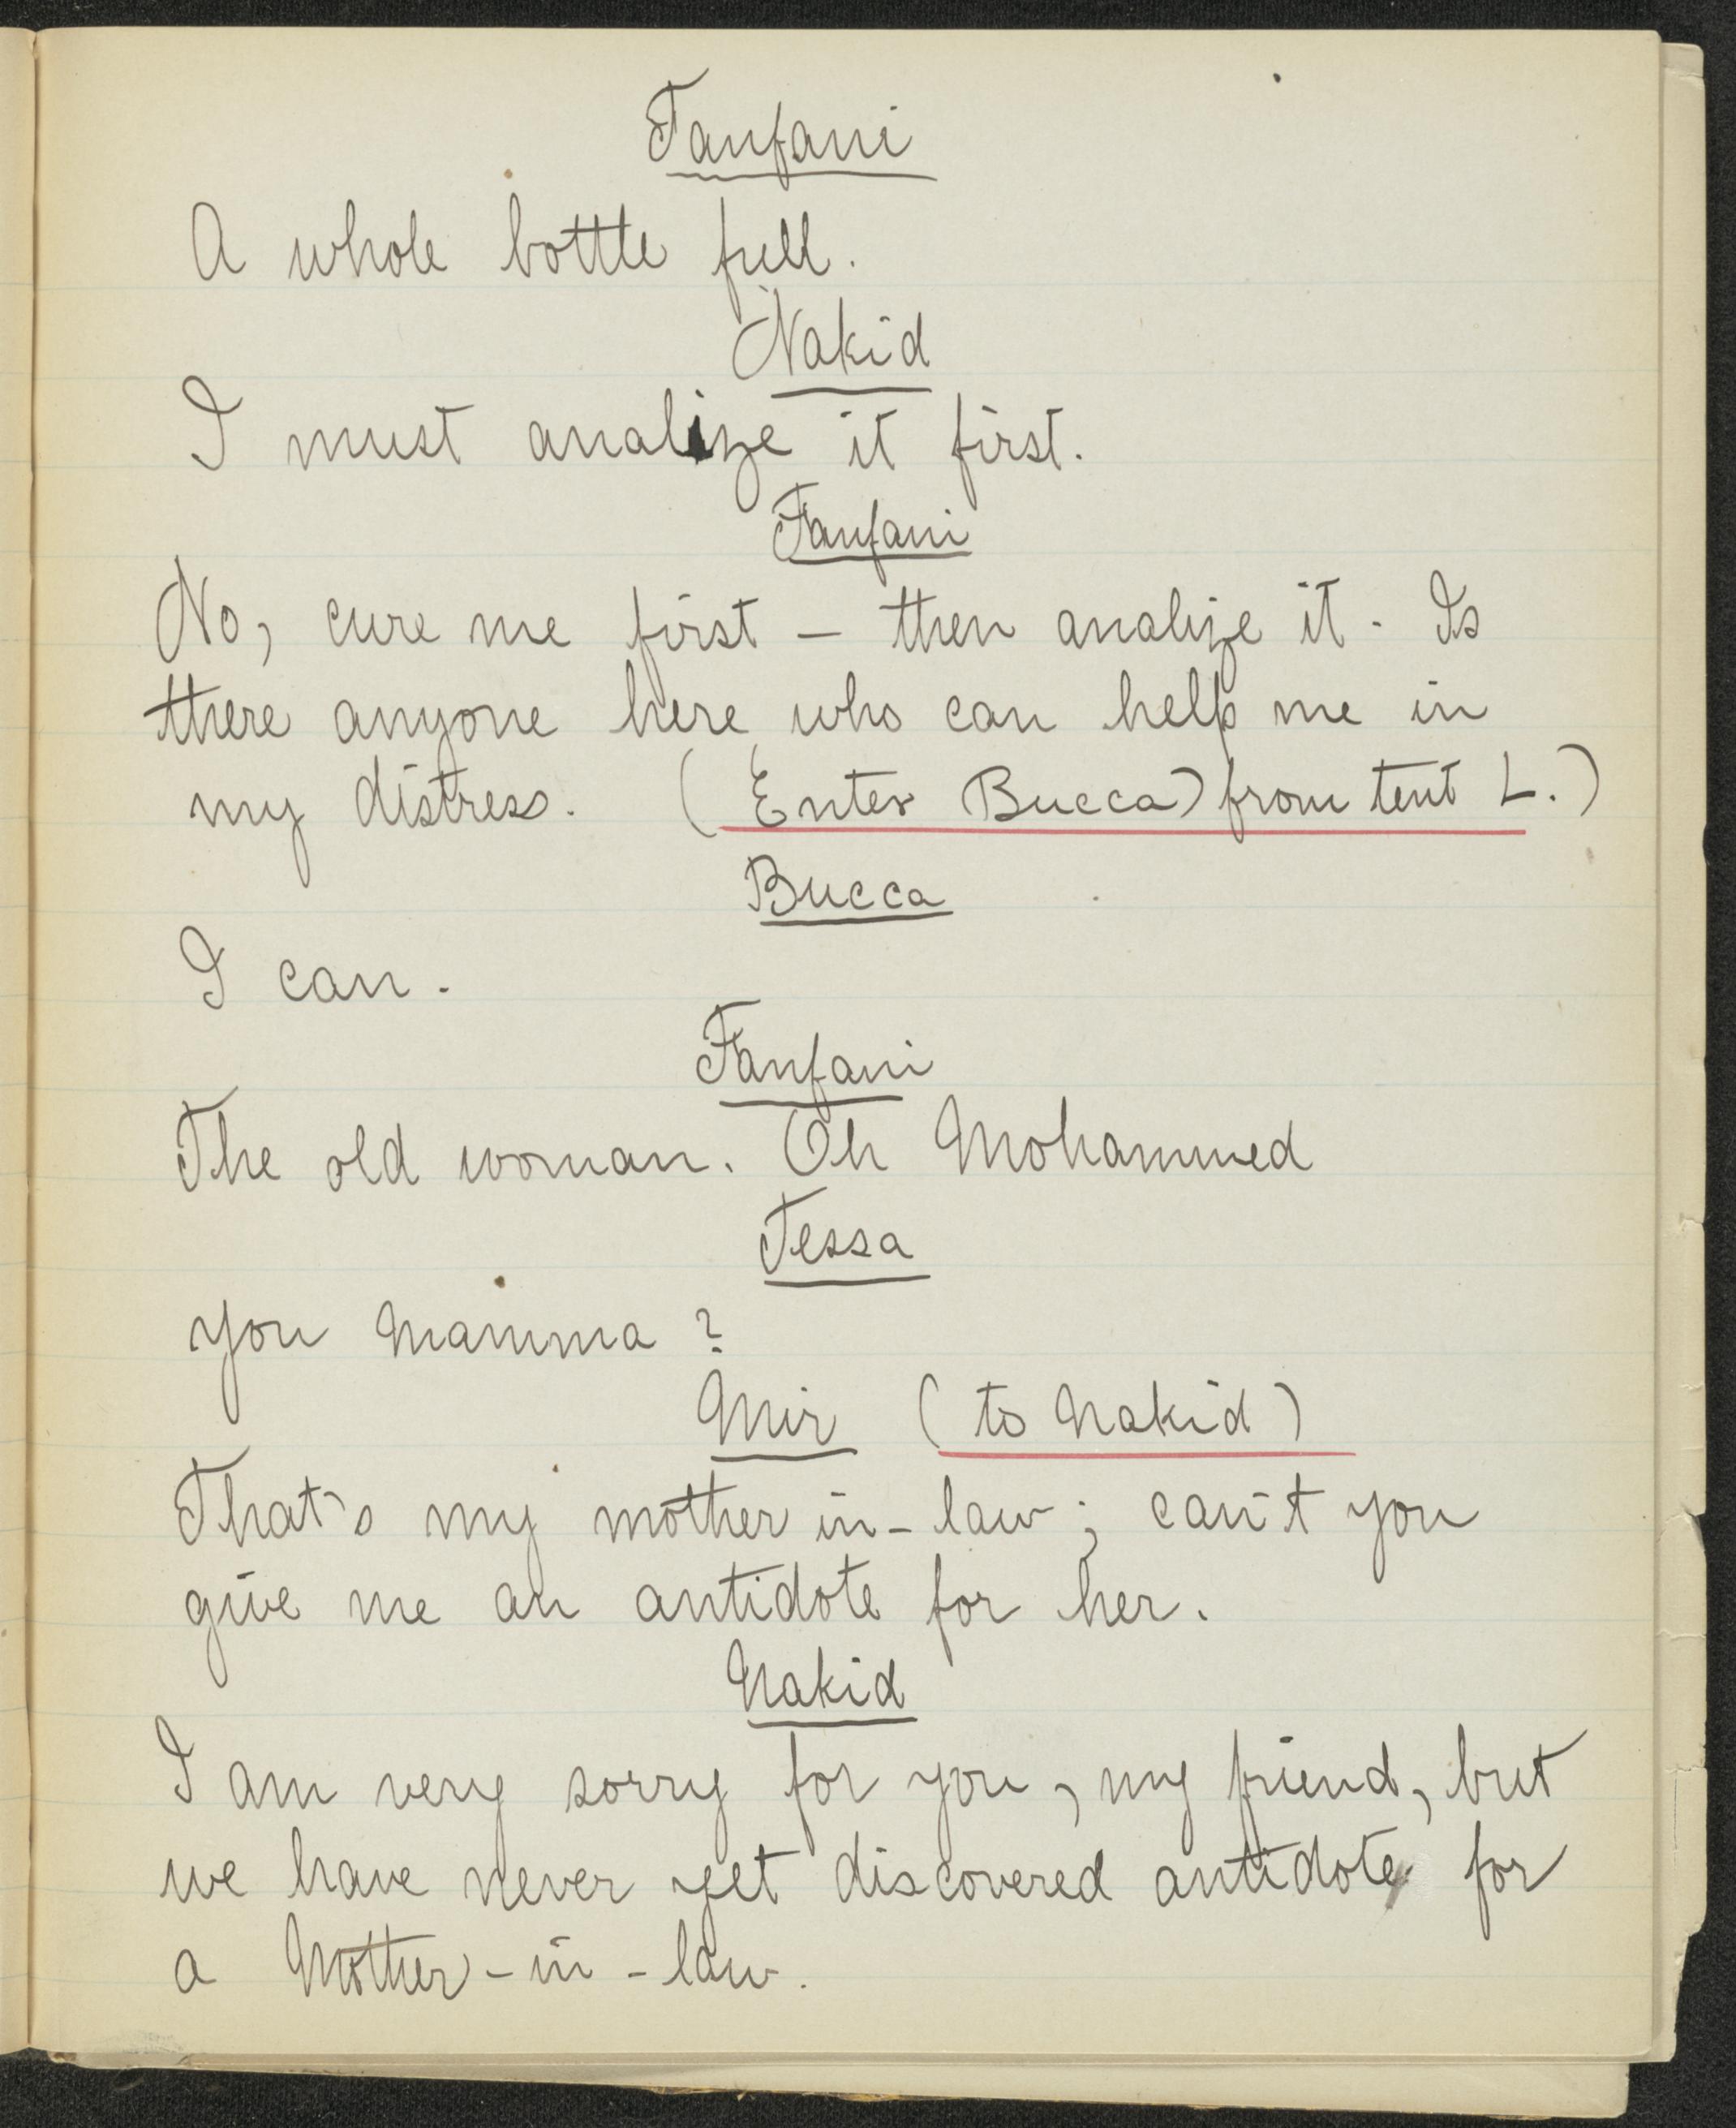 Fanfani
A whole bottle full.
Nakid
I must analize it first.
Fanfani
No, cure me first – then analize it. Is
there anyone here who can help me in
my distress. (Enter Bucca) from tent L.)
Bucca
I can.
Fanfani
The old woman. Oh Mohammed
Tessa
You Mamma?
Mir (to Nakid)
That's my mother in-law; can't you
give me an antidote for her.
Nakid
I am very sorry for you, my friend, but
we have never yet discovered antidote for
a Mother-in-law.